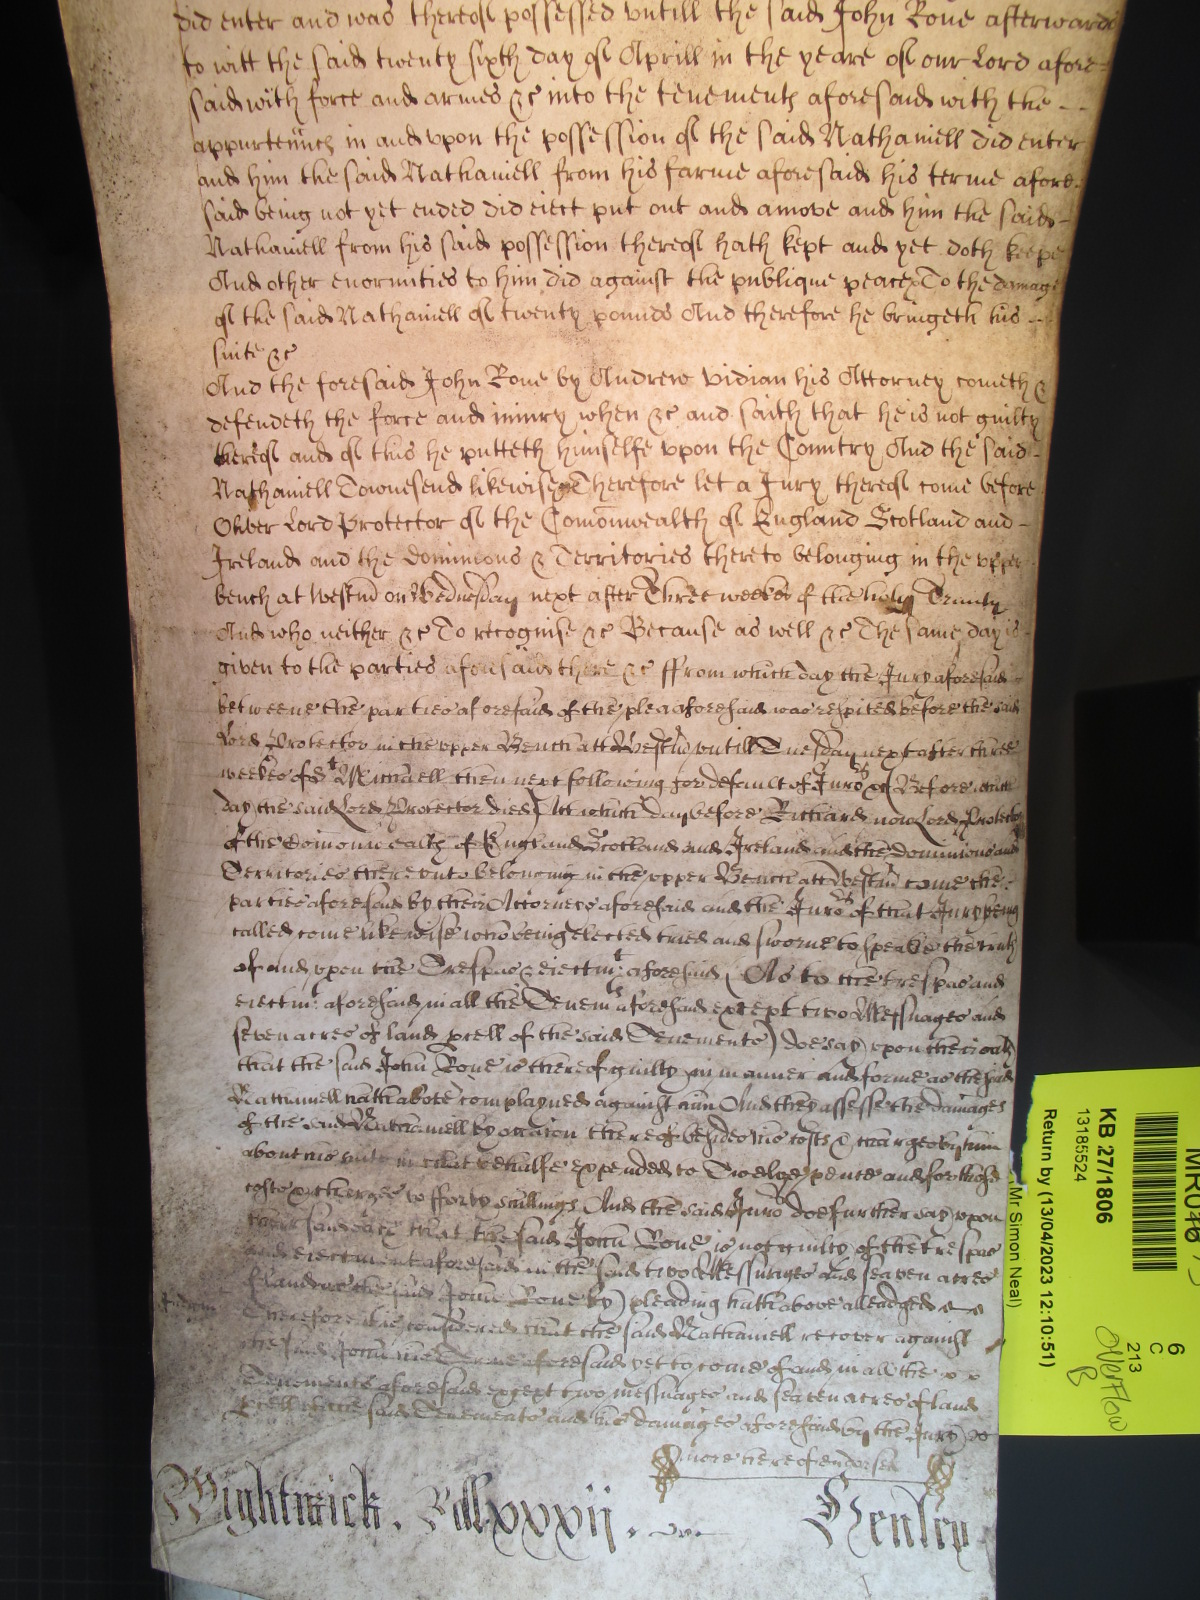 did enter and was thereof possessed vntill the said John Roue afterwards
to witt the said twenty sixth day of Aprill in the yeare of our Lord afore-
said with force and armes &c into the tenements aforesaid with the --
appurtennces in and vpon the possession of the said Nathaniell did enter
and him the said Nathaniell from his farme aforesaid his terme afore-
said being not yet ended did eiect put out and amove and him the said -
Nathaniell from his said possession thereof hath kept and yet doth keepe
And other enormities to him did against the publique peace To the damage
of the said Nathaniell of twenty pounds And therefore he bringeth his --
suite &c
And the foresaid John Roue by Andrew Vidian his Attorney cometh &
defendeth the force and iniury when &c and saith that he is not guilty
thereof and of this he putteth himselfe vpon the Country And the said -
Nathaniell Townesend likewise Therefore let a Jury thereof come before
Oliver Lord Protector of the Comonwealth of England Scotland and -
Ireland and the Dominions & Territories thereto belonging in the vpper
bench at Westm on Wednesday next after Three weekes of the holy Trinity
And who neither &c To recognise &c Because as well &c The same day is
given to the parties aforesaid there &c ffrom which day the Jury aforesaid
betweene the parties aforesaid of the plea aforesaid was respited before the said
Lord Protector in the vpper Bench att Westm vntill Tuesday next after three
weekes of St Michaell then next following for default of Juros &c Before which
day the said Lord Protector died Att which day before Richard now Lord Protector
of the Comonwealth of England Scotland and Ireland and the Dominions and
Territories therevnto belonging in the vpper Bench att Westm come the
parties aforesaid by their Attorneys aforesaid and the Juros of that Jury being
called come likewise who being elected tried and sworne to speake the truth
of and vpon the Trespas & eiectmt aforesaid (As to the trespas and
eiectmt aforesaid in all the Tenemts aforesaid except two Messuages and
seven acres of land pcell of the said Tenements) doe say vpon their oath
that the said John Roue is thereof guilty in manner and forme as the said
Nathaniell hath above complayned against him And they assesse the damages
of the said Nathaniell by occasion thereof besides his costs & charges by him
about his suite in that behalfe expended to Twelve pence and for those
costs & charges to fforty shillings And the said Juros doe further say vpon
their said oath that the said John Roue is not guilty of the trespas
and eiectment aforesaid in the said two Messuages and seaven acres
of land as the said John Roue by pleading hath above alleadged
Therefore it is considered that the said Nathaniell recover against
the said John his Terme aforesaid yet to come of and in all the
Tenements aforesaid except two messuages and seaven acres of land
pcell of the said Tenements and his damages aforesaid by the Jury
more hereof endorsed
Wightwick. Henley
6
C
213
Overflow
B
KB 27/1806
13185524
Return by (13/04/2023 12:10:51)
Mr Simon Neal)